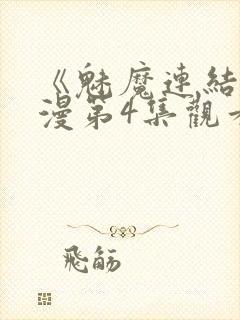 《魅魔連結
漫第4集觀看
飛觞